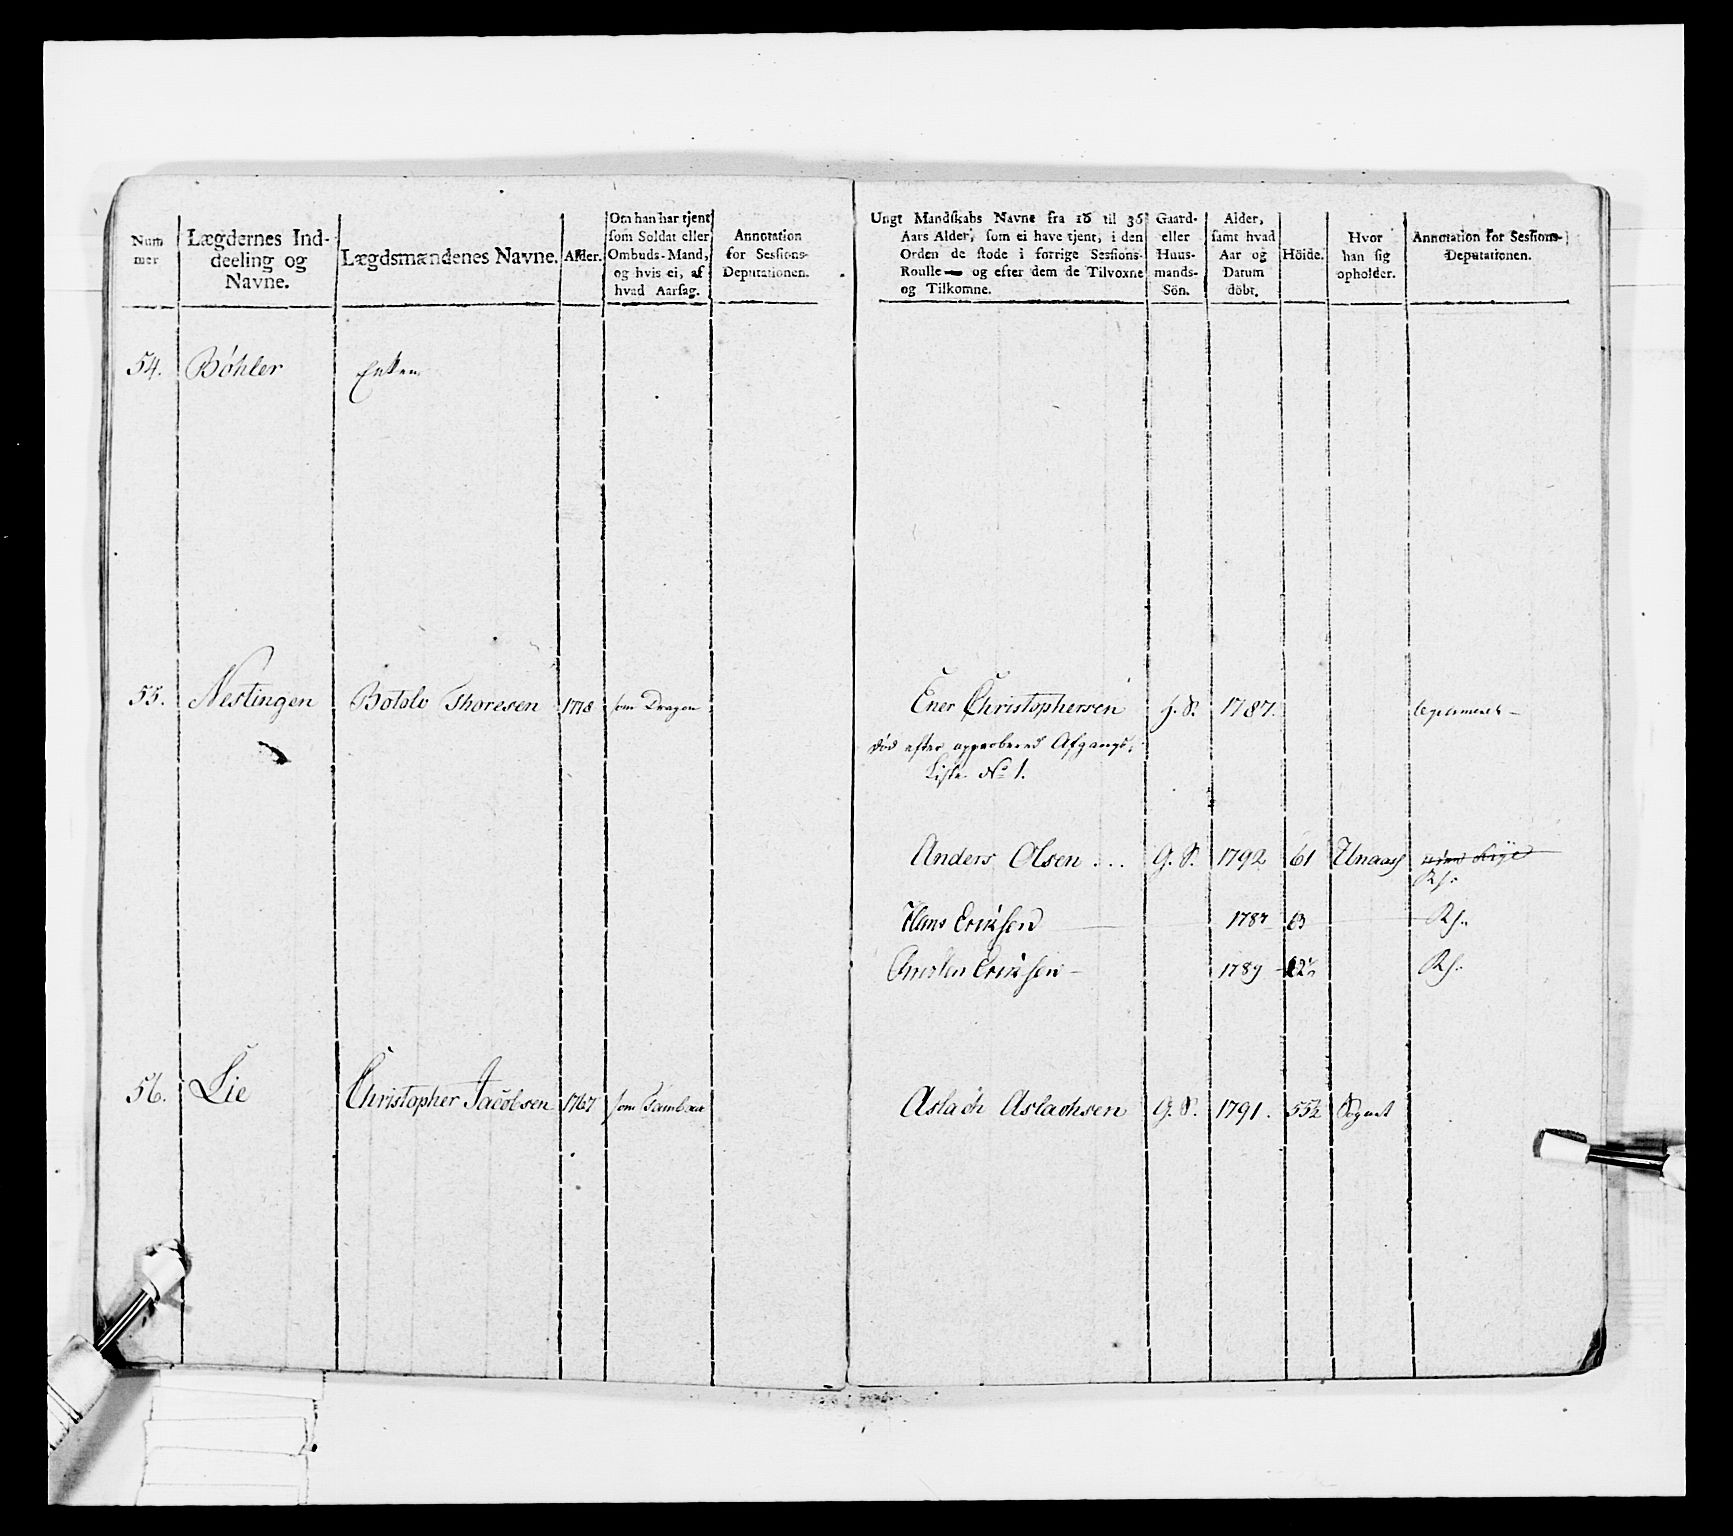 Num
mer
Lægdernes Ind-
deeling og
Navne.
Lægdsmændenes Navne.
Alder.
Om han har tjent
som Soldat eller
Ombuds-Mand,
og hvis ei, af
hvad Aarsag.
Annotation
for Sessions-
Deputationen.
Ungt Mandskabs Navne fra 16 til 36
Aars Alder, som ei have tjent, i den
Orden de stode i forrige Sessions-
Roulle — og efter dem de Tilvoxne
og Tilkomne.
Gaard-
eller
Huus-
mands-
Sön.
Alder,
samt hvad
Aar og
Datum
döbt.
Höide.
Hvor
han sig
opholder.
Annotation for Sessions-
Deputationen.
54. Bøhler Enken
55. Nestingen Botolv Thoresen 1778 som Dragon
Ener Christophersen H. S. 1787.
død efter approberet Afgangs-
Liste No 1.
Anders Olsen . . . G. S. 1792 61
Rf.
Hans Eriksen 1787 63 Rf.
Eriksen 1789 Rf.
56. Lie Christopher Jacobsen 1767 som Tambur
Aslach Aslachsen G. S. 1791. 55½ Sognet